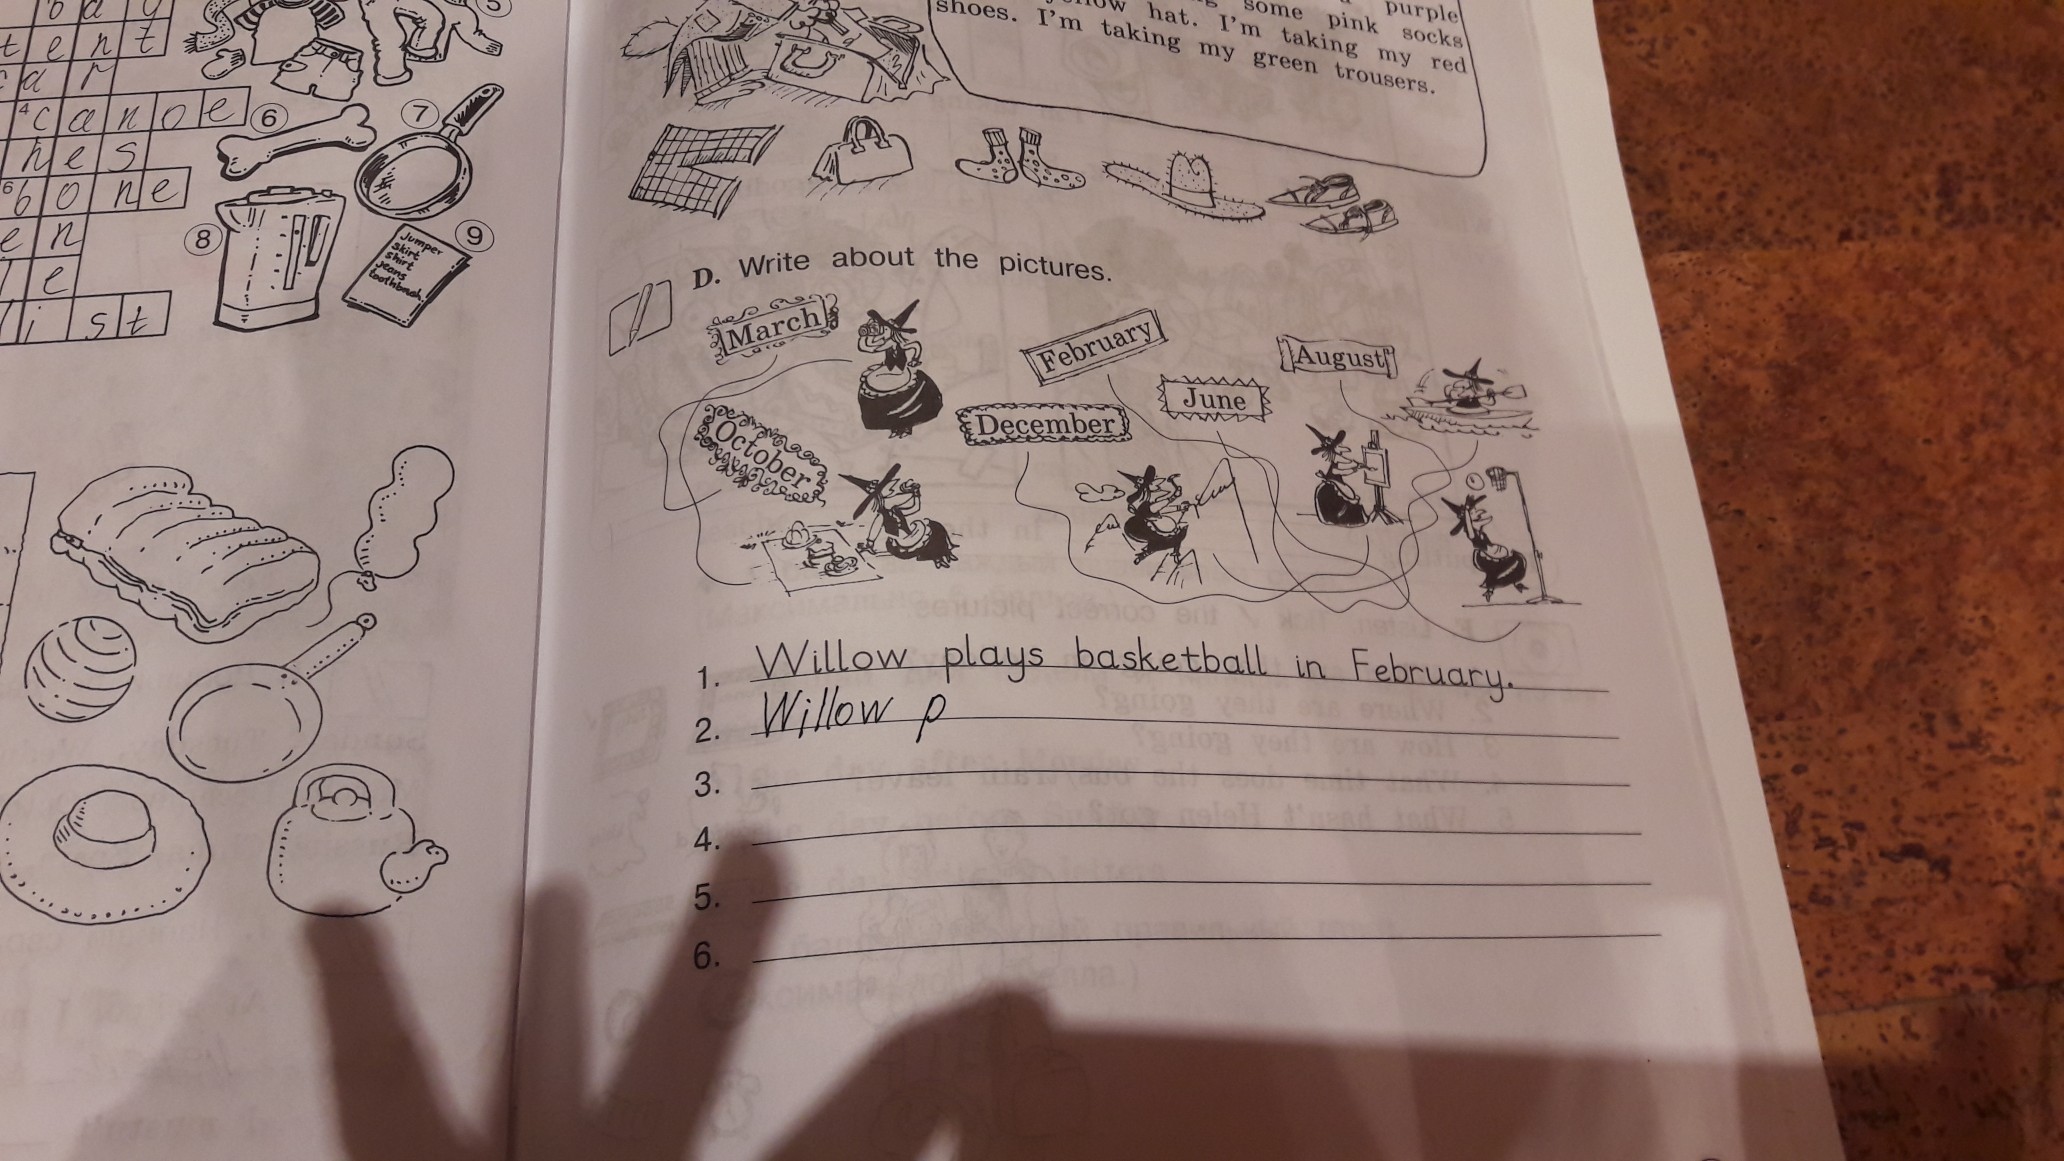 bay
tent
car
4 canoe
hes
6 bone
en
le
list
5
6
7
8
9
jumper
skirt
shirt
jeans
toothbrush
purple
yellow hat. I'm taking some pink socks
shoes. I'm taking my red
green trousers.
D. Write about the pictures.
March
February
August
June
December
October
1. Willow plays basketball in February.
2. Willow p
3.
4.
5.
6.